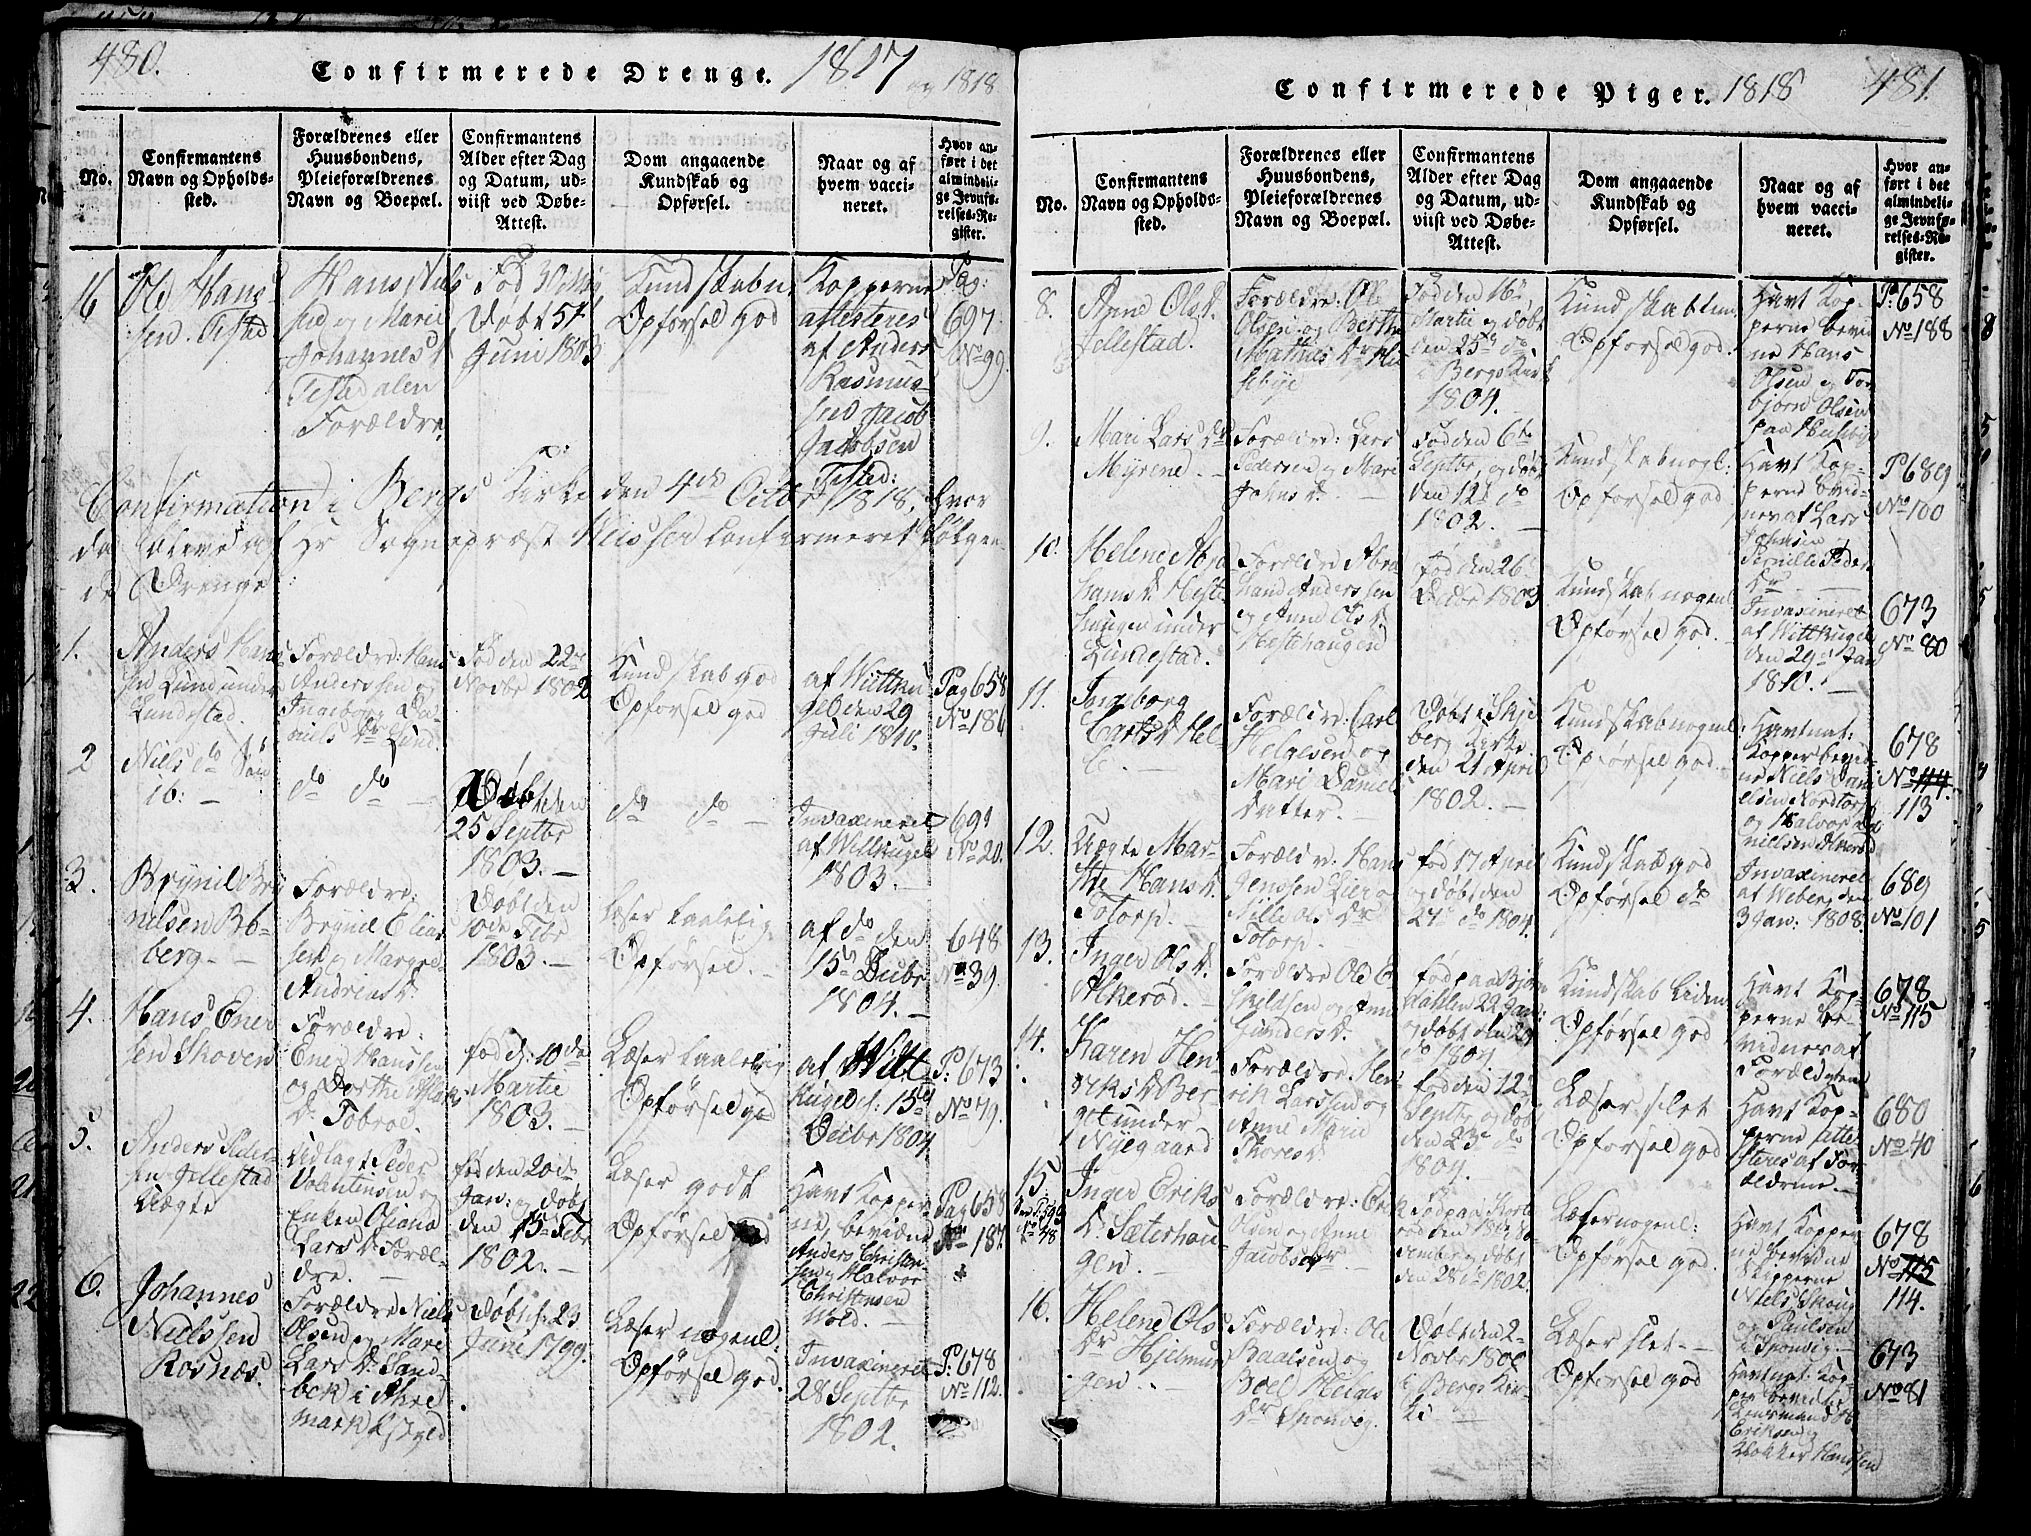 480.
Confirmerede Drenge. 1817 og 1818
No.
Confirmantens
Navn og Opholds-
sted.
Forældrenes eller
Huusbondens,
Pleieforældrenes
Navn og Boepæl.
Confirmantens
Alder efter Dag
og Datum, ud-
viist ved Døbe-
Attest.
Dom angaaende
Kundskab og
Opførsel.
Naar og af
hvem vacci-
neret.
Hvor an-
ført i det
almindeli-
ge Jevnfø-
relses-Re-
gister.
16
Ole Hans
sen Tisted
Hans Nils
sen og Marie
Johannes
Tistedalen
Forældre
Fød 30 May
Døbt 5te
Juni 1803
Kundskab
Opførsel god
Kopperne
attesteres
af Anders
Rasmus
sen Jacob
Jacobsen
Tisted:
Pag:
697
No 99.
Confirmation i Bergs Kirke den 4de Octbr 1818, hvor
da blive af Hr Sognepræst Nissen Confirmeret følgen
de Drenge:
1.
Anders Hans
sen Lund under
Lundestad.
Forældre: Hans
Anderssen og
Ingeborg Da-
niels Dr Lund.
Fød den 22de
Novbr 1802
Kundskab god
Opførsel god
af Wittku
gel den 29
Juli 1810.
Pag 658
No 186
2
Niels do
do do
Døbt den
25 Septbr
1803. —
do do —
Invaxineret
af Wittkugel
1803. —
691
No 20.
3.
Brynil Bry
nilsen Bø-
berg —
Forældre:
Brynil Elias
sen og Margre
Andreas D.
Døbt den
10de Febr
1803. —
Læser taalelig
Opførsel. —
af do den
15de Decbr
1804. —
648
No 39.
4.
Hans Ener
sen Skoven
Forældre:
Ener Hanssen
og Dorthe
D. Tobroe.
fød d: 10de
Martii
1803. —
Læser taalelig
Opførsel god
af Witt
kugel d: 15de
Decbr 1804.
P: 673
No 79.
5.
Anders Peder
sen Jellestad
Uægte
Udlagt Peder
Valentinsen og
Enken Osiana
Lars D. Foræl-
dre. —
fød den 20de
Jan: og døbt
den 15de Febr
1802. —
Læser godt
Opførsel god
Havt Kopper
ne, bevidne
Anders Christen
sen og Halvor
Christensen
Wold. —
Pag 658
No 187.
6.
Johannes
Nielssen
Rosnæs.
Forældre Niels
Olsen og Mare
Lars D. Sand-
bek i Aré
mark
Døbt d: 23
Juni 1799.
Læser nogenl:
Opførsel god.
Invaxineret
28 Septbr
1802.
P: 678
No 112.
Confirmerede Piger. 1818 481.
No.
Confirmantens
Navn og Opholds-
sted.
Forældrenes eller
Huusbondens,
Pleieforældrenes
Navn og Boepæl.
Confirmantens
Alder efter Dag
og Datum, ud-
viist ved Døbe-
Attest.
Dom angaaende
Kundskab og
Opførsel.
Naar og af
hvem vacci-
neret.
Hvor an-
ført i det
almindeli-
ge Jevnfø-
relses-Re-
gister.
8.
Anne Ols D.
Jellestad.
Forældre: Ole
Olsen og Berthe
Mathies Dr
Fød den 16de
Martii og døbt
den 25de do
i Bergs Kirke
1804.
Opførsel god.
Havt Kop-
perne bevid
ne Hans
Olsen og Tor
bjørn Olsen
P: 658
No 188
9.
Mari Lars Dr
Myrene. —
Forældre: Lars
Pedersen og Mari
Johns D. —
Fød den 6te
Septbr, og døbt
den 12te do
1802. —
Kundskab nogl:
Opførsel god
Havt Kop-
perne bevid-
net af Lars
Johnsen
Pernille Peder
Dr
P 689
No 100
10.
Helene Abra
hams D. Heste
haugen under
Lundestad.
Forældre Abra
ham Anderssen
og Anne Ols D.
Hestehaugen
fød den 26de
Decbr 1803
Kundskab nogenl
Opførsel god. —
Invaxineret
af Wittkugel
den 29de Jan
1810. —
673
No 80
11.
Ingeborg
Carls D.
Forældre: Carl
Helgesen og
Mari Daniels
Datter. —
Døbt i Skje
berg Kirke
den 21 April
1802. —
Kundskab nogenl
Opførsel god. —
Havt nat:
Kopper bevid
ne Niels Dani
elsen Nordtorp
og Halvor
678
No 114.
113
12.
Uægte Mar-
the Hans D.
Totorp.
Forældre: Hans
Jenssen Lier og
Nille Ols Dr
Totorp.
fød 17 April
og døbt den
21de do 1804.
Kundskab god
Opførsel do
Invaxineret
af Weber, den
3 Jan: 1808.
689
No 101
13.
Inger Ols D.
Akerød.
Forældre Ole E
skildsen og Ann
Gunders D.
fød paa Bjør
dahlen 22 Jan:
og døbt den
do 1804
Kundskab liden
Opførsel god
Havt Kop-
perne be-
vidnet af
Forældrene
678
No 115
14.
Karen Hen
riks D. Ber-
get under
Nyegaard
Forældre: Hen
rik Larssen og
Anne Marie
Thores D.
fød den 12te
Septbr og døbt
den 23de do
1804.
Læser slet
Opførsel god
Havt Kop-
perne atte-
steres af For-
ældrene —
680
No 40
15.
Inger Eriks
D. Sæterhau
gen. —
Forældre: Erik
Olsen og Anne
Jacobs Dr. —
den 28 do 1802.
Læser nogenl:
Opførsel god
Havt Kopper
ne bevidne
Skipperne
Niels Skoug
og Paulsen
i Sponvig. —
678
No 115
114.
16.
Helene Ols
Dr Hjelmun
gen. —
Forældre: Ole
Baalsen, og
Boel Helges
Dr Sponvig.
Døbt den 2
Novbr
i Bergs Kir-
ke —
Læser slet —
Opførsel god
Havt nat: Kop
per bevidne
Lensmand
Eriksen og
Hanssen
673
No 81